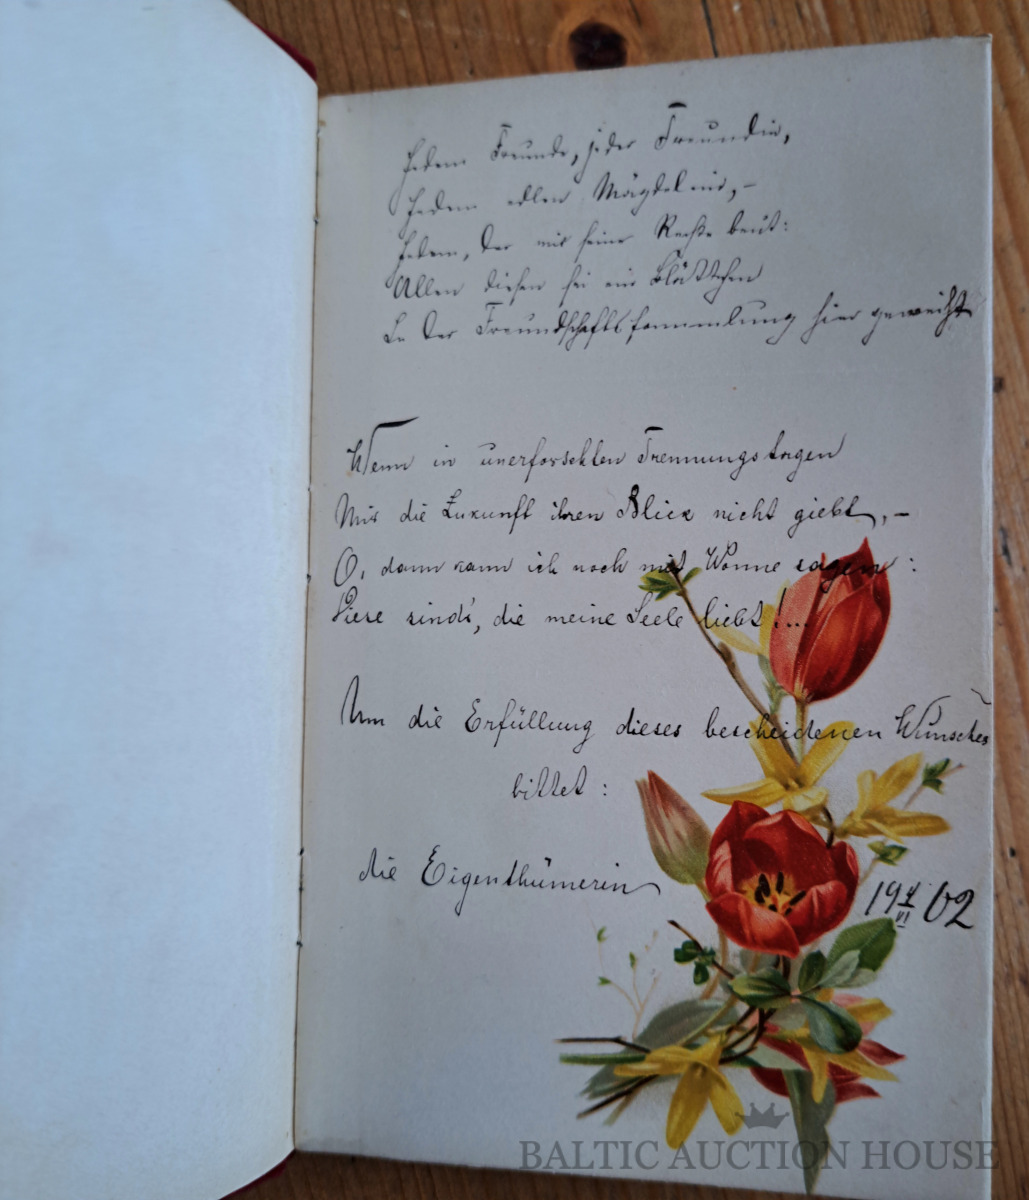 Jedem Freunde, jeder Freundin,
Jedem edlen Mägdelein, –
Jedem, der mir seine Rechte beut:
Allen diesen sei ein Blättchen
In der Freundschaftssammlung hier geweiht
Wenn in unerforschten Trennungstagen
Mir die Zukunft ihren Blick nicht giebt, –
O, dann kann ich noch mit Wonne sagen:
Diese sind's, die meine Seele liebt!...
Um die Erfüllung dieses bescheidenen Wunsches
bittet:
die Eigenthümerin
19 4/VI 02
BALTIC AUCTION HOUSE